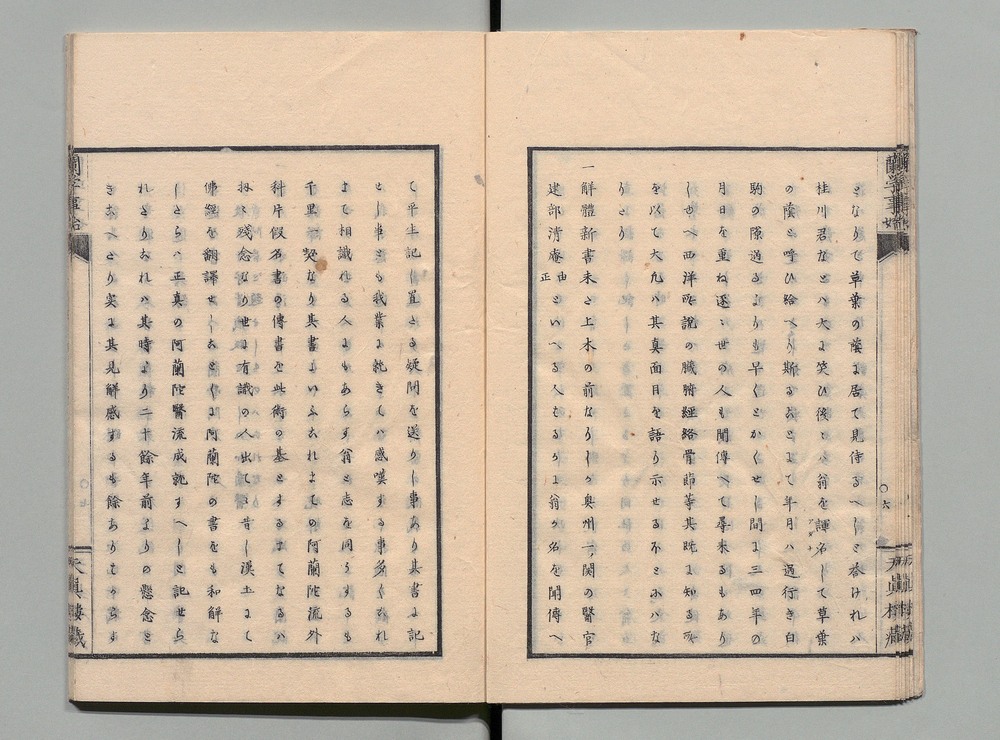 となりて草葉の蔭に居て見侍るへしと答けれハ
桂川君なとハ大に笑ひ後々ハ翁を諢名して草葉
の蔭と呼ひ給へり斯ることにて年月ハ過行き白
駒の隙過るよりも早くとかくせし間に三四年の
月日を重ね逐々世の人も聞傳へて尋来るもあり
しゆへ西洋所説の臓腑経絡骨節等其既に知る所
を以て大凡ハ其真面目を語り示せる不とふハな
りたり
一解體新書未と上木の前なりしか奥州一ノ関の醫官
建部清庵由正といへる人もるかに翁か名を聞傳へ
て平生記し置たる疑問を送りし事あり其書に記
せし事とも我業に就きてハ感嘆する事多くこれ
まて相識れる人にもあらす翁と志を同うするも
千里一契なり其書にいふこれまての阿蘭陀流外
科片假名書の傳書を此術の基とするまてなるハ
扨々残念なり世に有識の人出てゝ昔し漢土にて
佛経を翻譯せしことくに阿蘭陀の書をも和解な
したらハ正真の阿蘭陀醫流成就すへしと記せら
れたりこれハ其時より二十餘年前よりの懸念と
きこへたり実に其見解感するも餘ありてからす
蘭学事始
〇六
天真樓蔵
蘭学事始
〇七
天真樓蔵